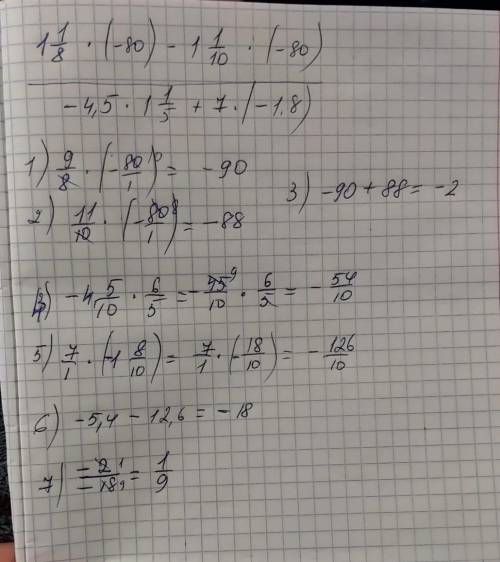 1 1/8 · (-80) - 1 1/10 · (-80)
-4,5 · 1 1/5 + 7 · (-1,8)
1) 9/8 · (-80/1)^10 = -90
3) -90 + 88 = -2
2) 11/10 · (-80/1)^8 = -88
4) -4 5/10 · 6/5 = -45/10^9 · 6/5 = -54/10
5) 7/1 · (-1 8/10) = 7/1 · (-18/10) = -126/10
6) -5,4 - 12,6 = -18
7) -2^1/-18_9 = 1/9